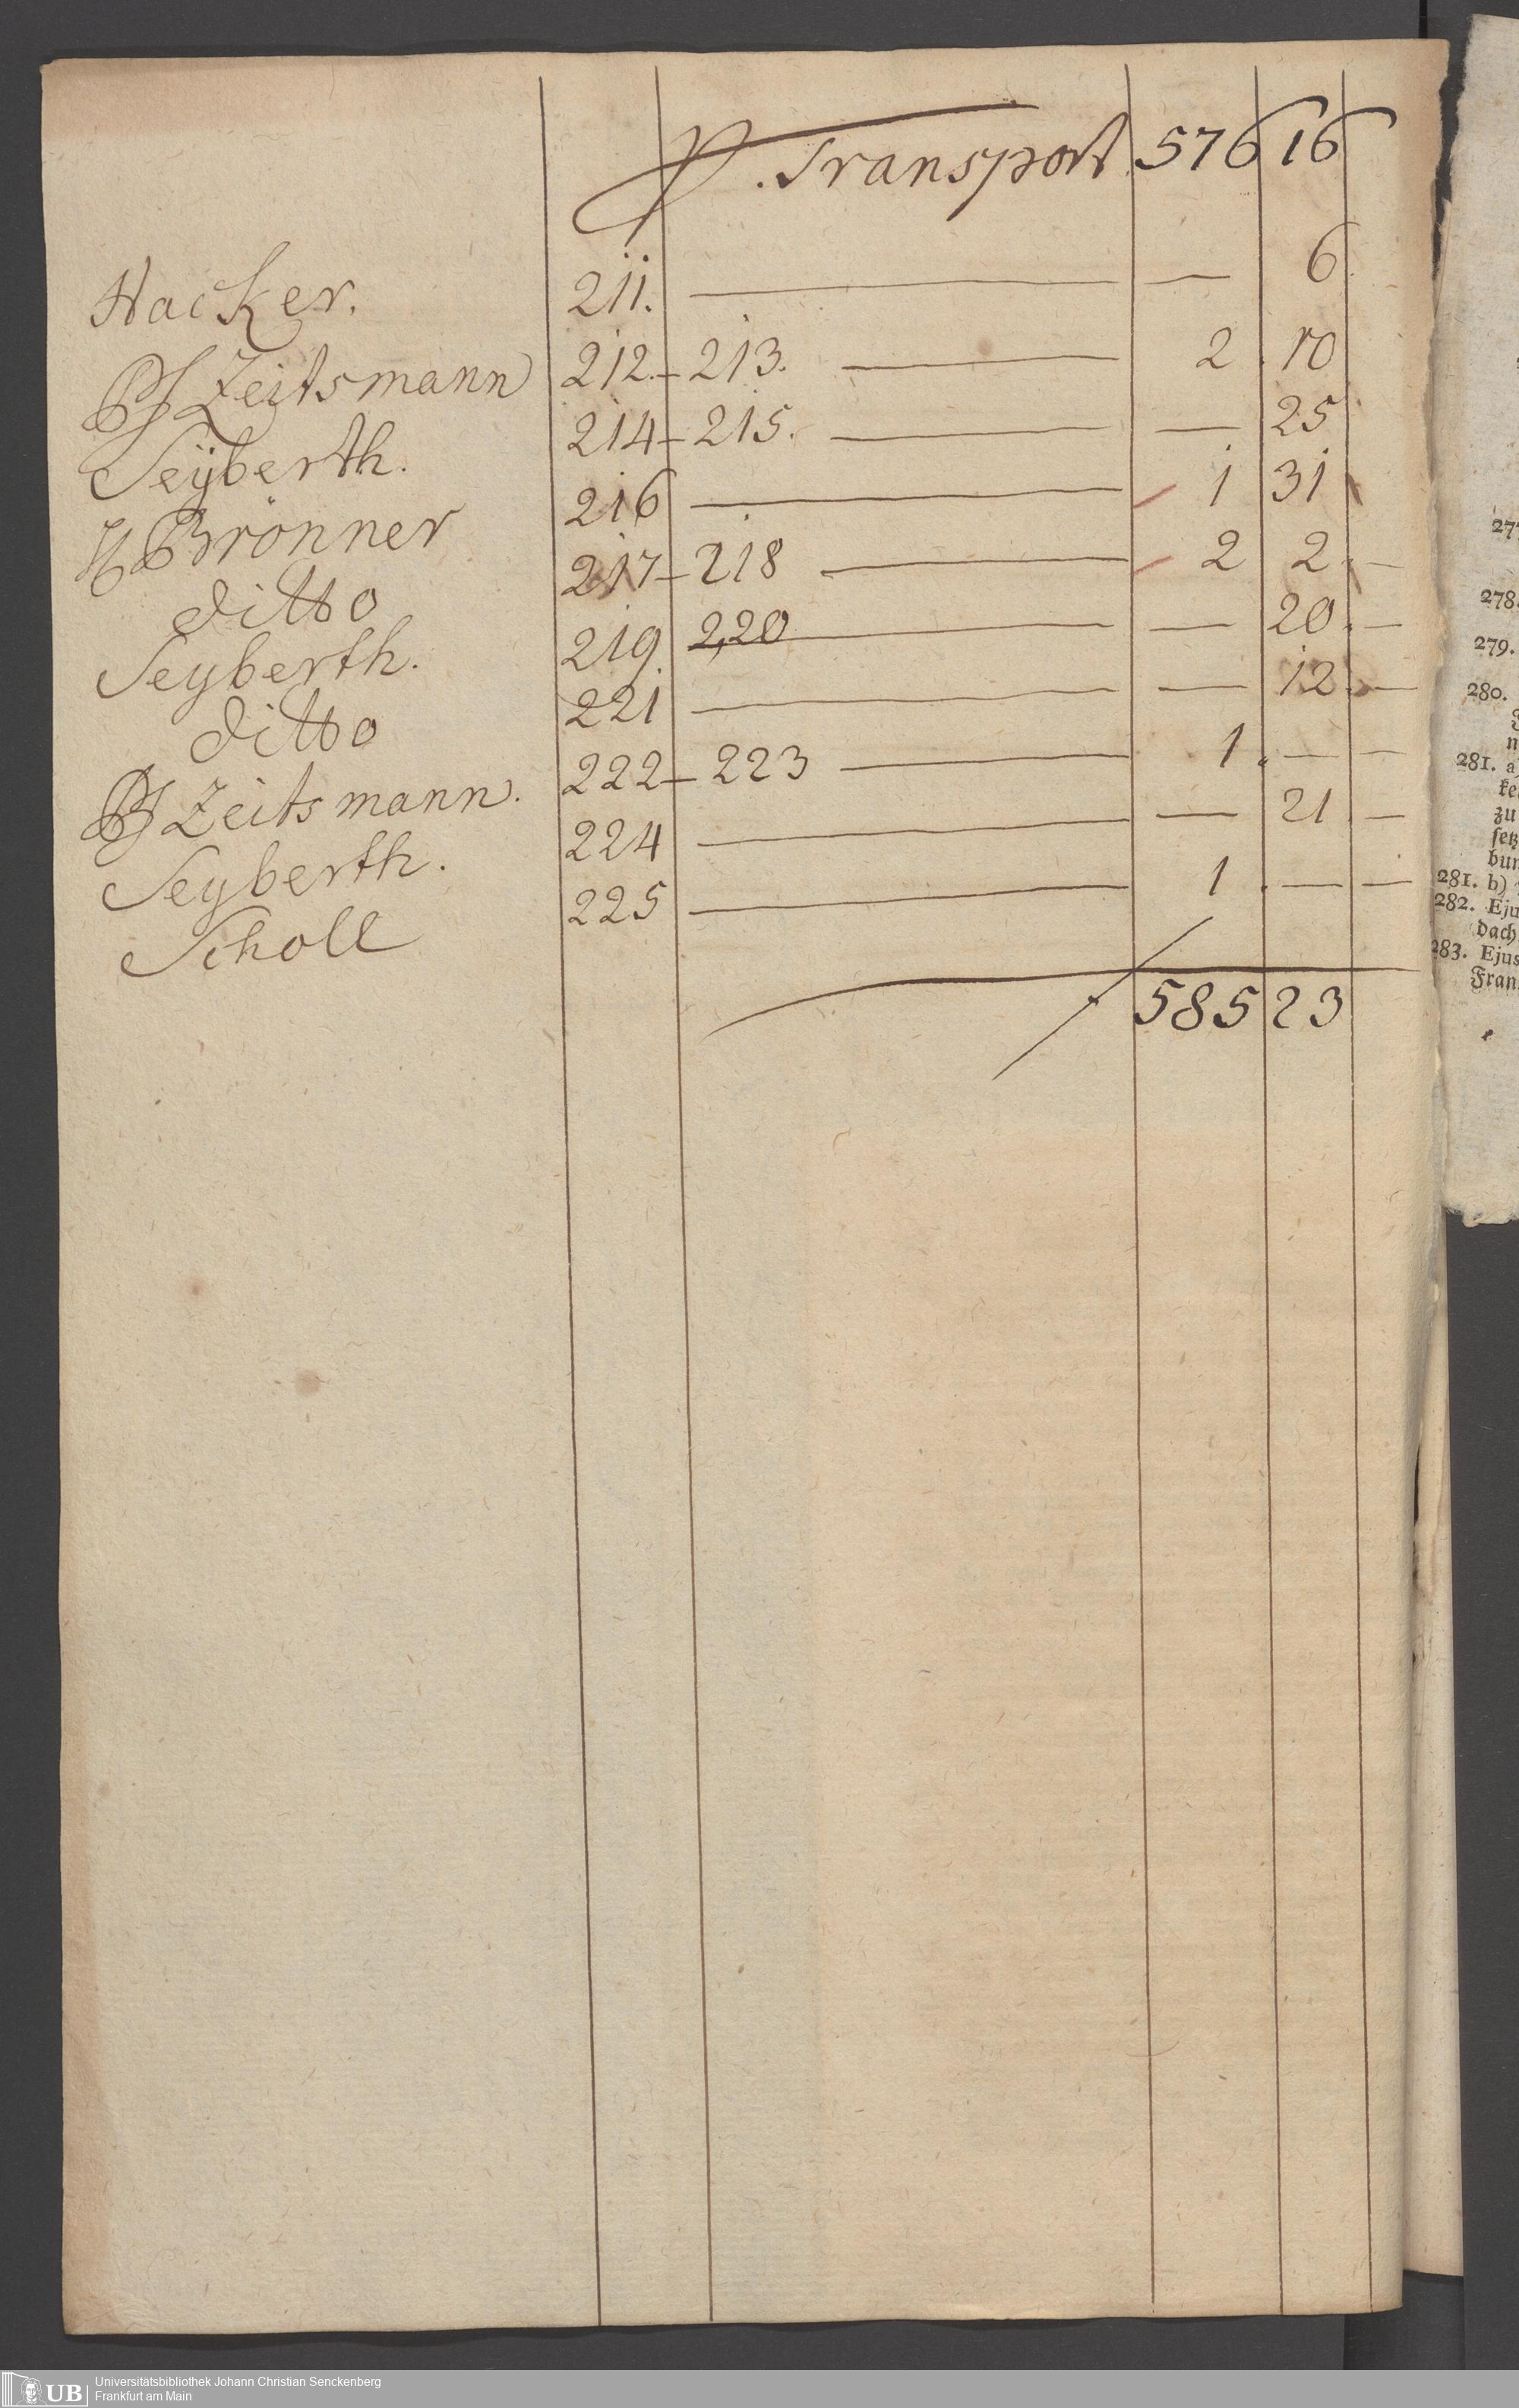 P. Transport 576 16
Hacker. 211. — — 6
PJ Zeitsmann 212. – 213. — 2 . 10
Seÿberth. 214 – 215. — — 25
H Brönner 216 — 1 31
ditto 217 – 218 — 2 2 . —
Seyberth. 219. 220 — — 20 . —
ditto 221 — — 12 . —
PJ Zeitsmann. 222 – 223 — 1 . — —
Seyberth. 224 — — 21 . —
Scholl 225 — 1 . — —
585 23
277
278.
279.
280.
281. a
zu
281. b)
282. Eju
dach
283. Ejus
Fran
UB Universitätsbibliothek Johann Christian Senckenberg
Frankfurt am Main